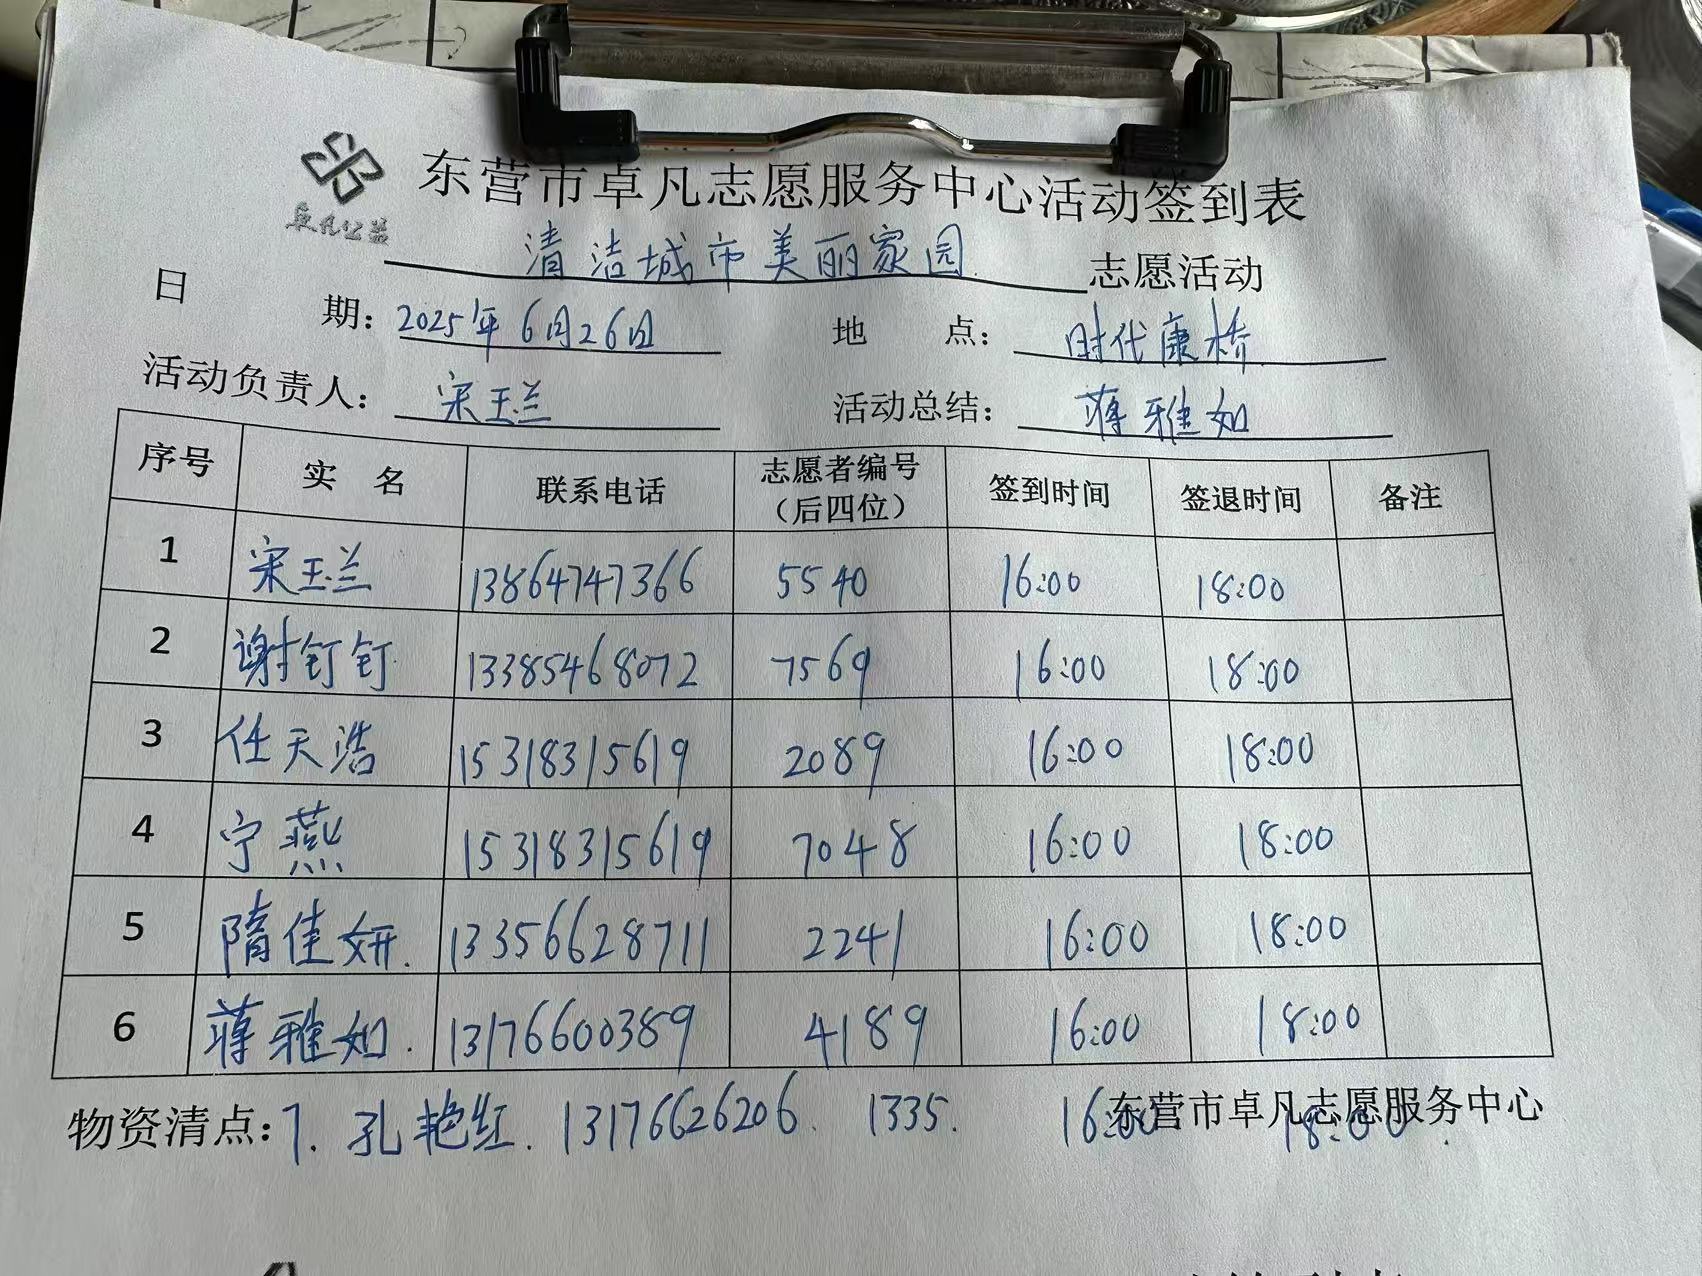 卓凡公益
东营市卓凡志愿服务中心活动签到表
清洁城市美丽家园 志愿活动
日 期：2025年6月26日 地 点：时代康桥
活动负责人：宋玉兰 活动总结：蒋雅如
序号 实 名 联系电话 志愿者编号（后四位） 签到时间 签退时间 备注
1 宋玉兰 13864747366 5540 16:00 18:00
2 谢钉钉 13385468072 7569 16:00 18:00
3 任天浩 15318315619 2089 16:00 18:00
4 宁燕 15318315619 7048 16:00 18:00
5 隋佳妍. 13356628711 2241 16:00 18:00
6 蒋雅如. 13176600389 4189 16:00 18:00
物资清点：7. 孔艳红. 13176626206. 1335. 16:00 18:00.
东营市卓凡志愿服务中心